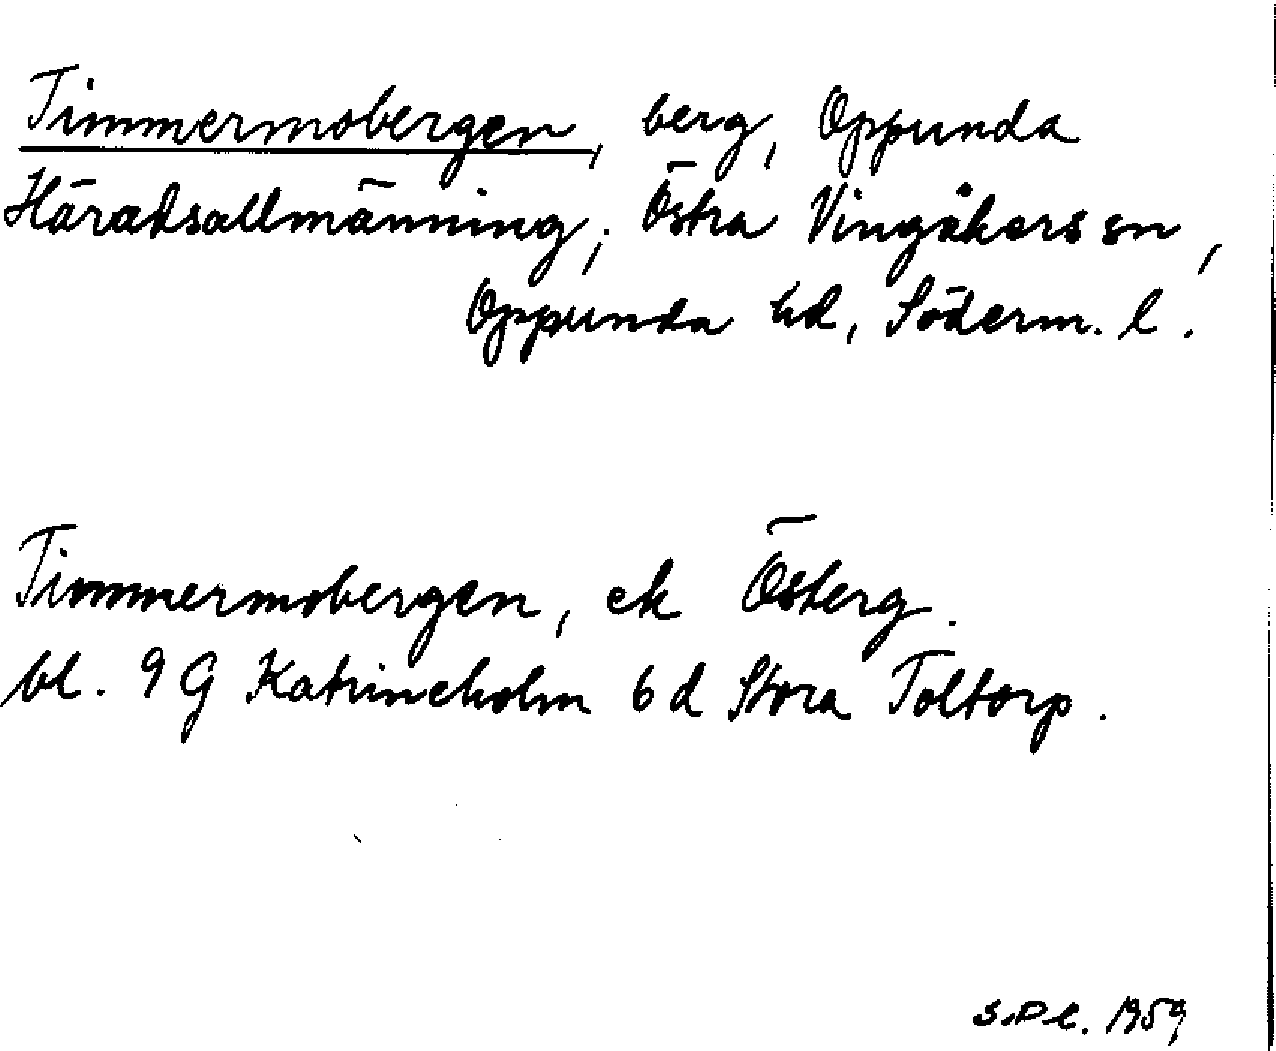 Timmermobergen, berg, Oppunda
Häradsallmänning; Östra Vingåkers sn,
Oppunda hd, Söderm. l.
Timmermobergen, ek Österg.
bl. 9 G Katrineholm 6 d Stora Toltorp.
S.P.C. 1959